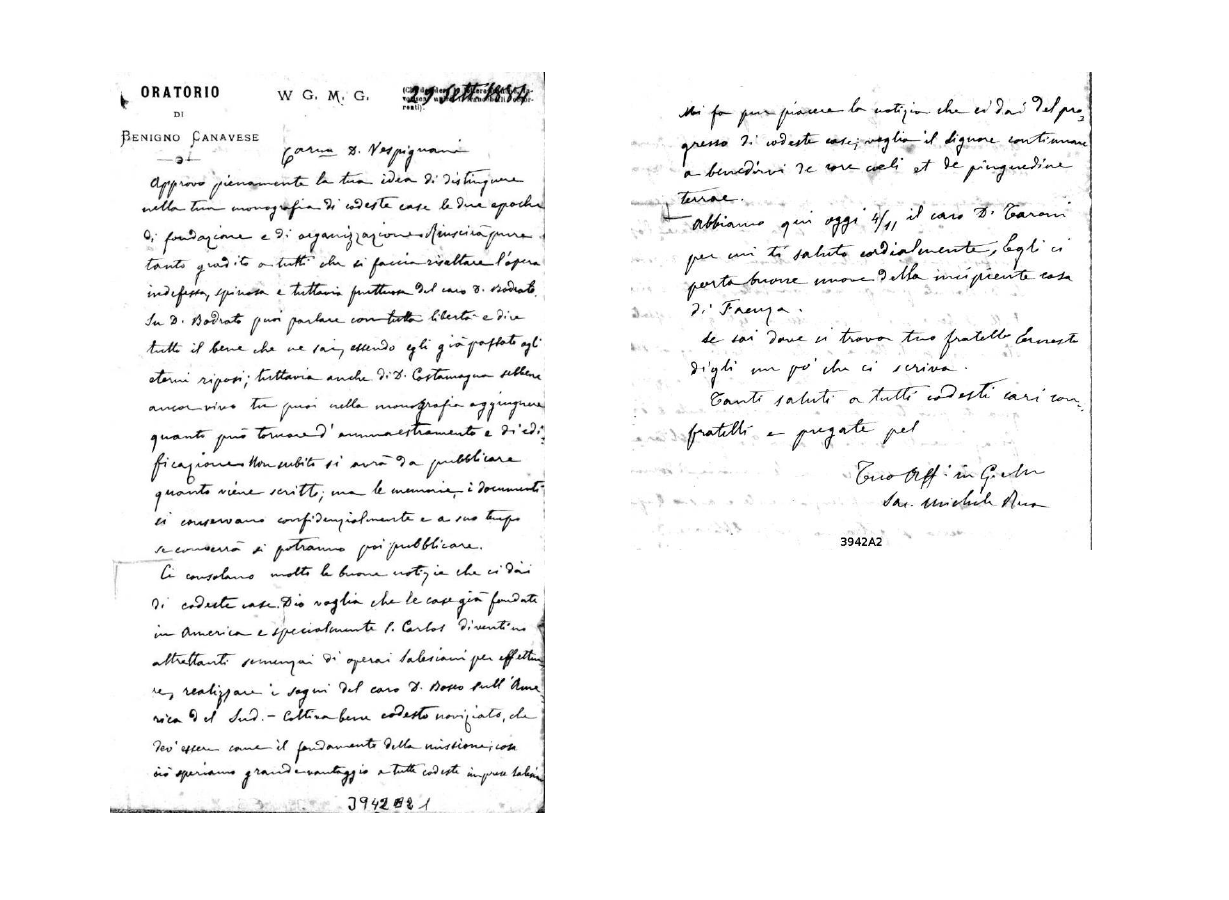 ORATORIO
DI
BENIGNO CANAVESE
W G. M. G.
29 Sett 1884
Carmo D. Vespignani
Approvo pienamente la tua idea di distinguere
nella tua monografia di codeste case le due epoche
di fondazione e di organizzazione. Riuscirà pure
tanto gradito a tutti che si faccia risaltare l'opera
indefessa, spinosa e tuttavia fruttuosa del caro D. Bodrato.
Su D. Bodrato puoi parlare con tutta libertà e dire
tutto il bene che ne sai, essendo egli già passato agli
eterni riposi; tuttavia anche di D. Costamagna sebbene
ancor vivo tu puoi nella monografia aggiungere
quanto può tornare d'ammaestramento e di edi-
ficazione. Non subito si avrà da pubblicare
quanto viene scritto; ma le memorie, i documenti
si conservano confidenzialmente e a suo tempo
se converrà si potranno poi pubblicare.
Ci consolano molto le buone notizie che ci dai
di codeste case. Dio voglia che le case già fondate
in America e specialmente S. Carlos diventino
altrettanti semenzai di operai Salesiani per effettua
re, realizzare i sogni del caro D. Bosco sull'Ame-
rica del Sud. - Coltiva bene codesto noviziato, che
dev'essere come il fondamento della missione; con
ciò speriamo grande vantaggio a tutte codeste imprese Salesia
3942 1
Mi fa pur piacere la notizia che ci dai del pro-
gresso di codeste case; voglia il Signore continuare
a benedirvi de rore coeli et de pinguedine
terrae.
Abbiamo qui oggi 4/11 il caro D. Taroni
per cui ti saluto cordialmente, Egli ci
porta buone nuove della incipiente casa
di Faenza.
Se sai dove si trova tuo fratello Ernesto
digli un po' che ci scriva.
Tanti saluti a tutti codesti cari con-
fratelli e pregate pel
Tuo Aff. in G. e M.
Sac. Michele Rua
3942A2